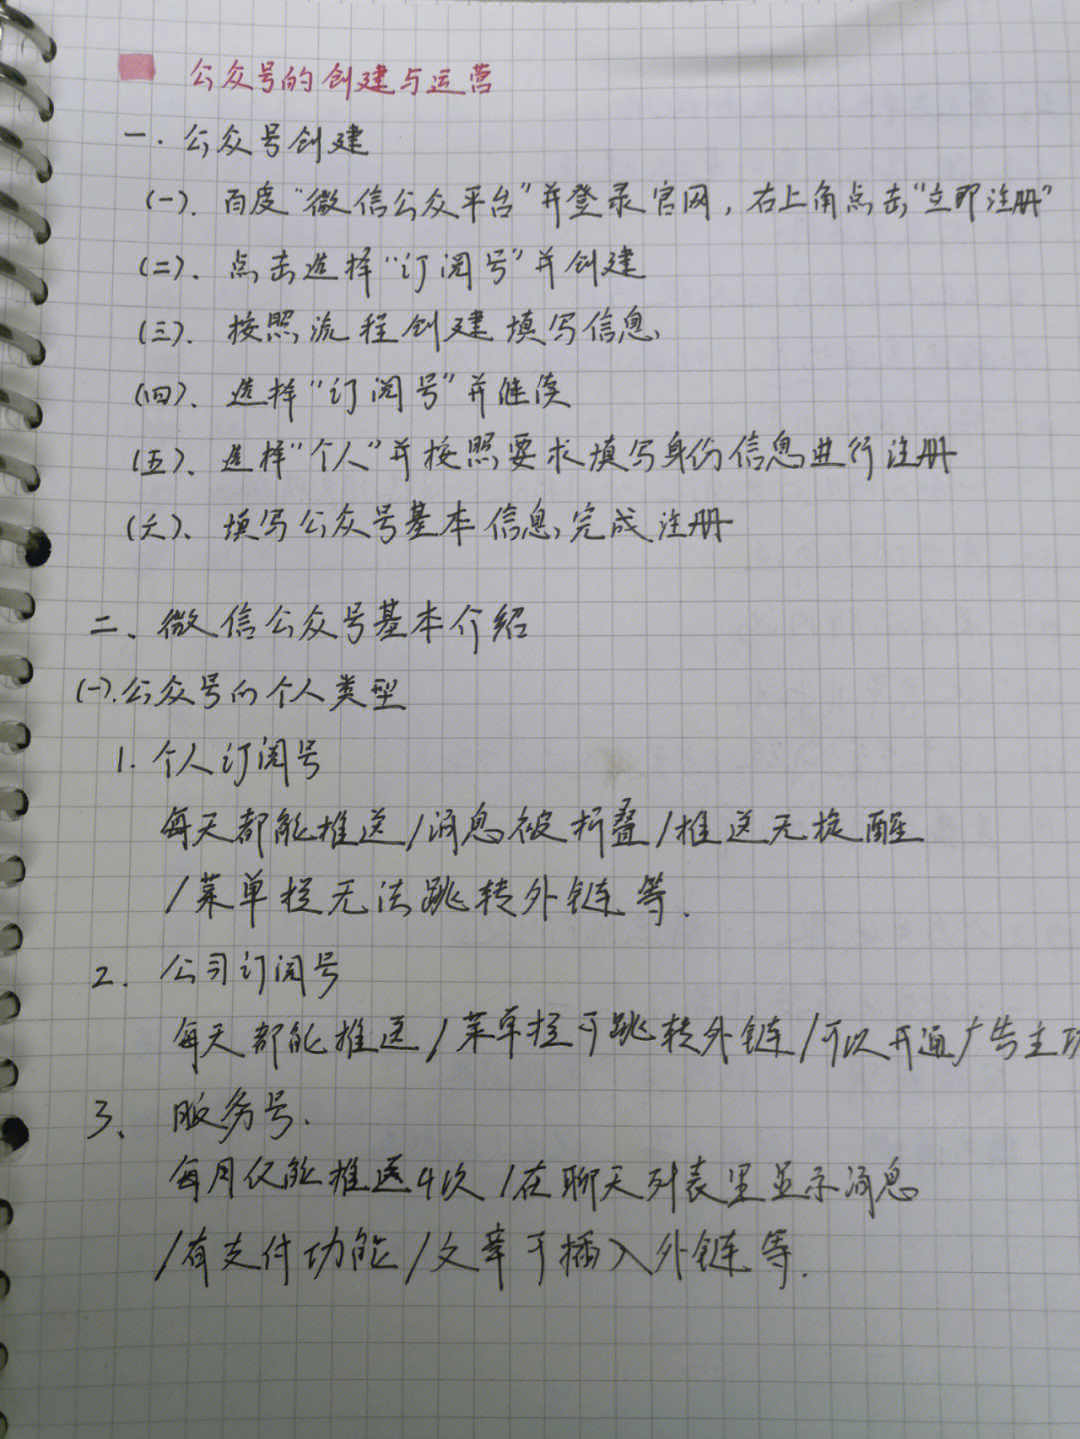 公众号的创建与运营
一.公众号创建
(一). 百度“微信公众平台”并登录官网,右上角点击“立即注册”
(二)、点击选择“订阅号”并创建
(三)、按照流程创建填写信息
(四)、选择“订阅号”并继续
(五)、选择“个人”并按照要求填写身份信息进行注册
(六)、填写公众号基本信息,完成注册
二、微信公众号基本介绍
(一).公众号的个人类型
1. 个人订阅号
每天都能推送/消息被折叠/推送无提醒
/菜单栏无法跳转外链等.
2. 公司订阅号
每天都能推送/菜单栏可跳转外链/可以开通广告主
3、服务号.
每月仅能推送4次/在聊天列表里显示消息
/有支付功能/文章可插入外链等.